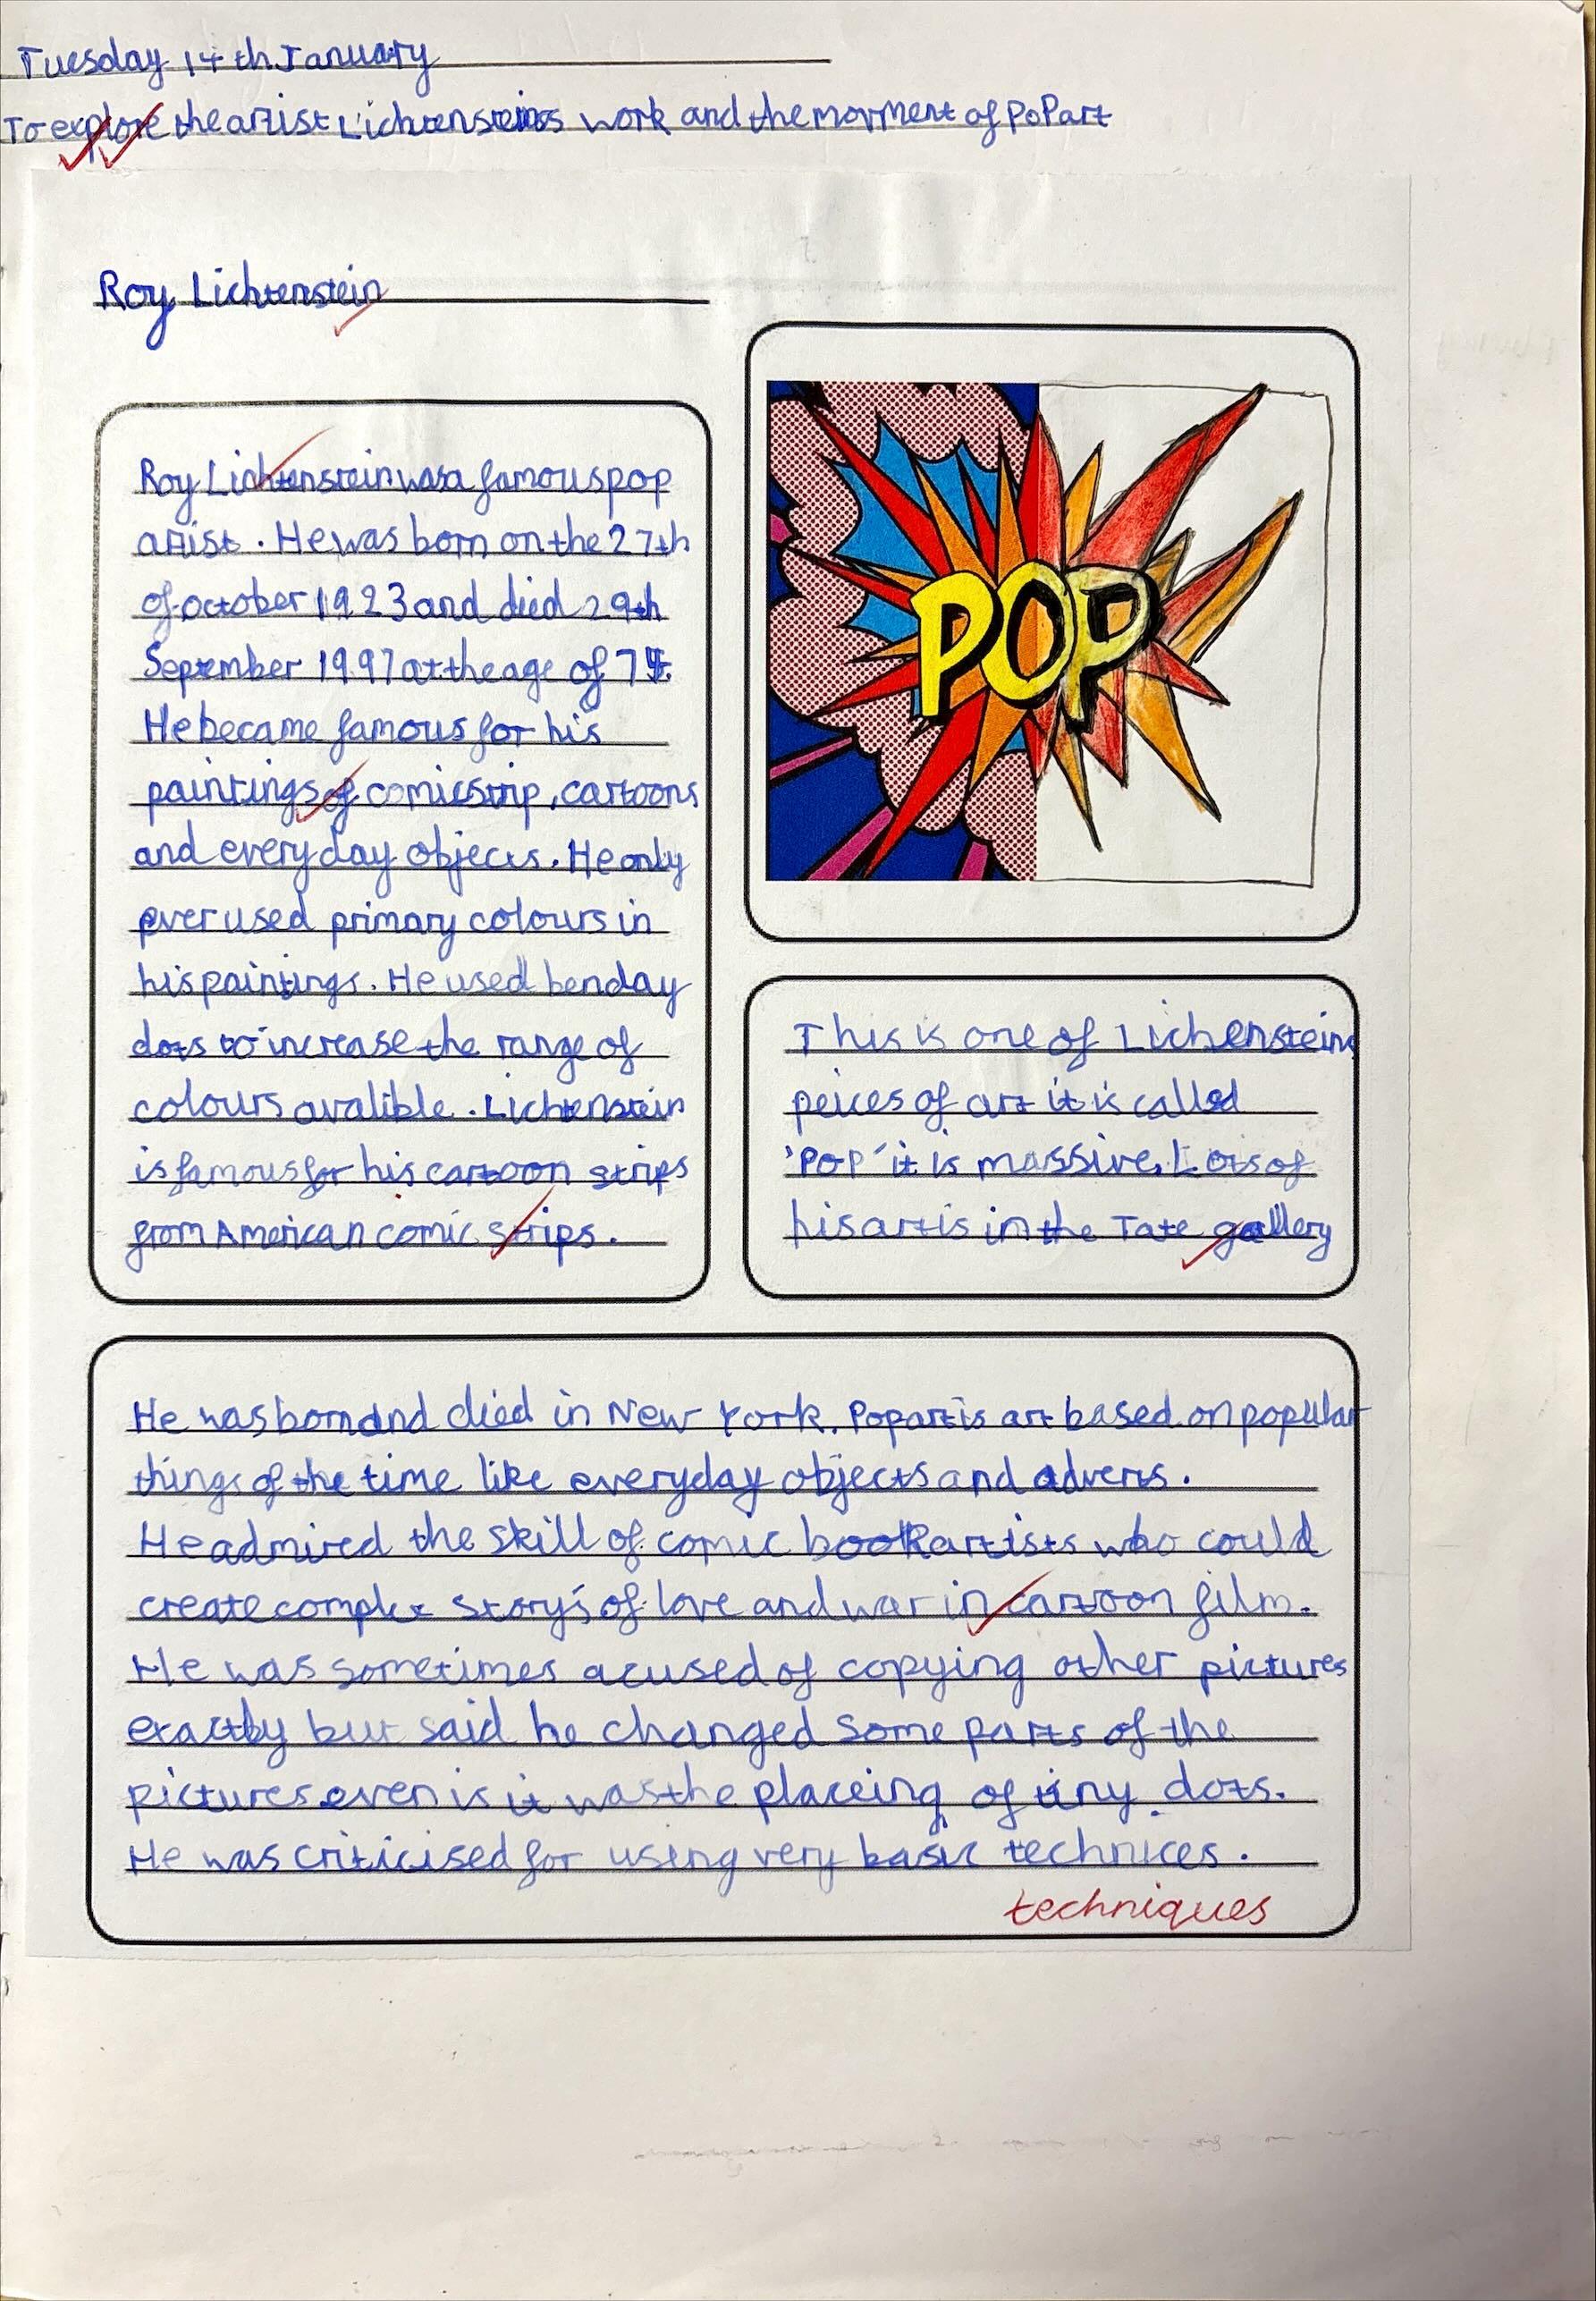 Tuesday 14th January
To explore the artist Lichtensteins work and the movment of PoP art
Roy Lichtenstein
Roy Lichtenstein was a famous pop
artist. He was born on the 27th
of october 1923 and died 29th
September 1997 at the age of
He became famous for his
paintings of comic strip, cartoons
and everyday objects. He only
ever used primary colours in
his paintings. He used benday
dots to increase the range of
colours avalible. Lichtenstein
is famous for his cartoon strips
from American comic strips.
POP
This is one of Lichensteins
peices of art it is called
'POP' it is massive. Lots of
his art is in the Tate gallery
He was born and died in New York. Pop art is art based on popular
things of the time like everyday objects and adverts.
He admired the skill of comic book artists who could
create complex story's of love and war in cartoon film.
He was sometimes acused of copying other pictures
exactly but said he changed some parts of the
pictures even is it was the placeing of tiny dots.
He was criticised for using very basic technices.
techniques